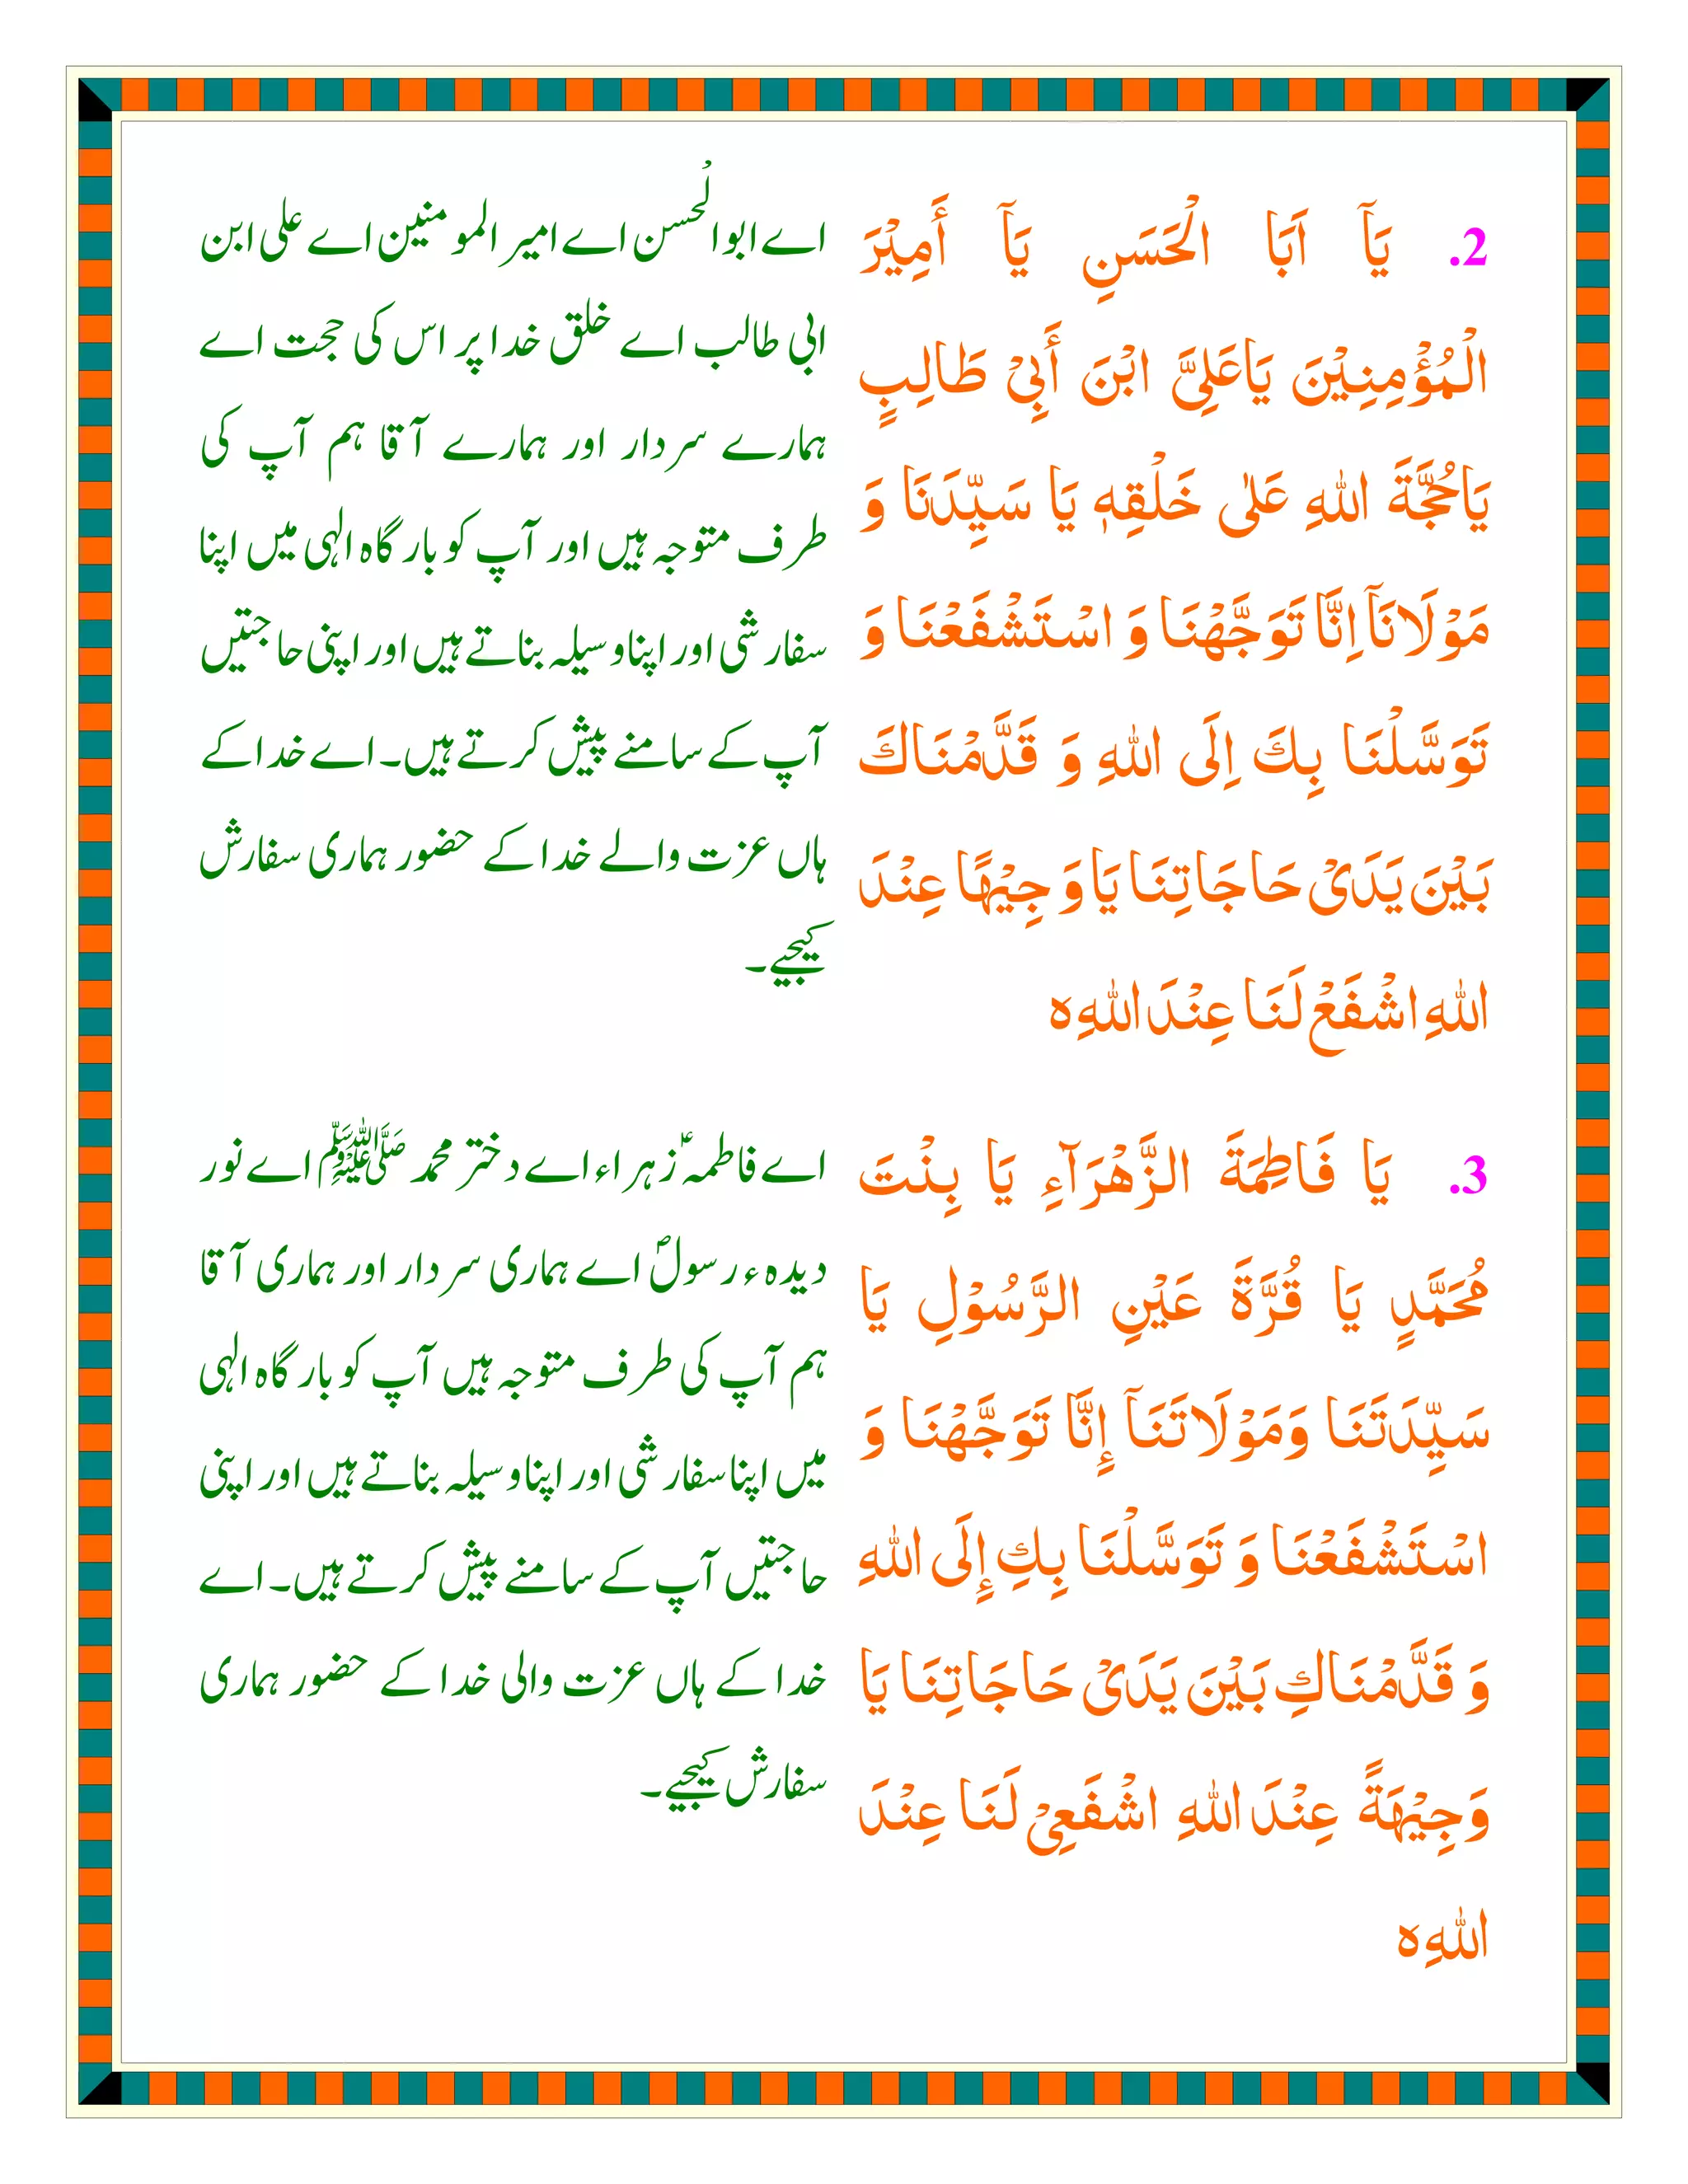 2. يَآ اَبَا الْحَسَنِ يَآ أَمِيْرَ
الْمُؤْمِنِيْنَ يَاعَلِىَّ ابْنَ أَبِىْ طَالِبٍ
يَاحُجَّةَ اللهِ عَلىٰ خَلْقِهٖ يَا سَيِّدَنَا وَ
مَوْلَانَآ اِنَّا تَوَجَّهْنَا وَ اسْتَشْفَعْنَا وَ
تَوَسَّلْنَا بِكَ اِلَى اللهِ وَ قَدَّمْنَاكَ
بَيْنَ يَدَىْ حَاجَاتِنَا يَا وَجِيْهًا عِنْدَ
اللهِ اشْفَعْ لَنَا عِنْدَ اللهِ ہ
اے ابوالحُسن اے امیر المومنین اے علی ابن
ابی طالب اے خلق خدا پر اس کی حجت اے
ہمارے سردار اور ہمارے آقا ہم آپ کی
طرف متوجہ ہیں اور آپ کو بارگاہ الہٰی میں اپنا
سفارشی اور اپنا وسیلہ بناتے ہیں اور اپنی حاجتیں
آپ کے سامنے پیش کرتے ہیں۔ اے خدا کے
ہاں عزت والے خدا کے حضور ہماری سفارش
کیجیے۔
3. يَا فَاطِمَةَ الزَّهْرَآءِ يَا بِنْتَ
مُحَمَّدٍ يَا قُرَّةَ عَيْنِ الرَّسُوْلِ يَا
سَيِّدَتَنَا وَمَوْلَاتَنَآ إِنَّا تَوَجَّهْنَا وَ
اسْتَشْفَعْنَا وَ تَوَسَّلْنَا بِكِ إِلَى اللهِ
وَ قَدَّمْنَاكِ بَيْنَ يَدَىْ حَاجَاتِنَا يَا
وَجِيْهَةً عِنْدَ اللهِ اشْفَعِىْ لَنَا عِنْدَ
اللهِ ہ
اے فاطمہؑ زہراء اے دختر محمد ﷺ اے نور
دیدہء رسولؐ اے ہماری سردار اور ہماری آقا
ہم آپ کی طرف متوجہ ہیں آپ کو بارگاہ الہٰی
میں اپنا سفارشی اور اپنا وسیلہ بناتے ہیں اور اپنی
حاجتیں آپ کے سامنے پیش کرتے ہیں۔ اے
خدا کے ہاں عزت والی خدا کے حضور ہماری
سفارش کیجیے۔